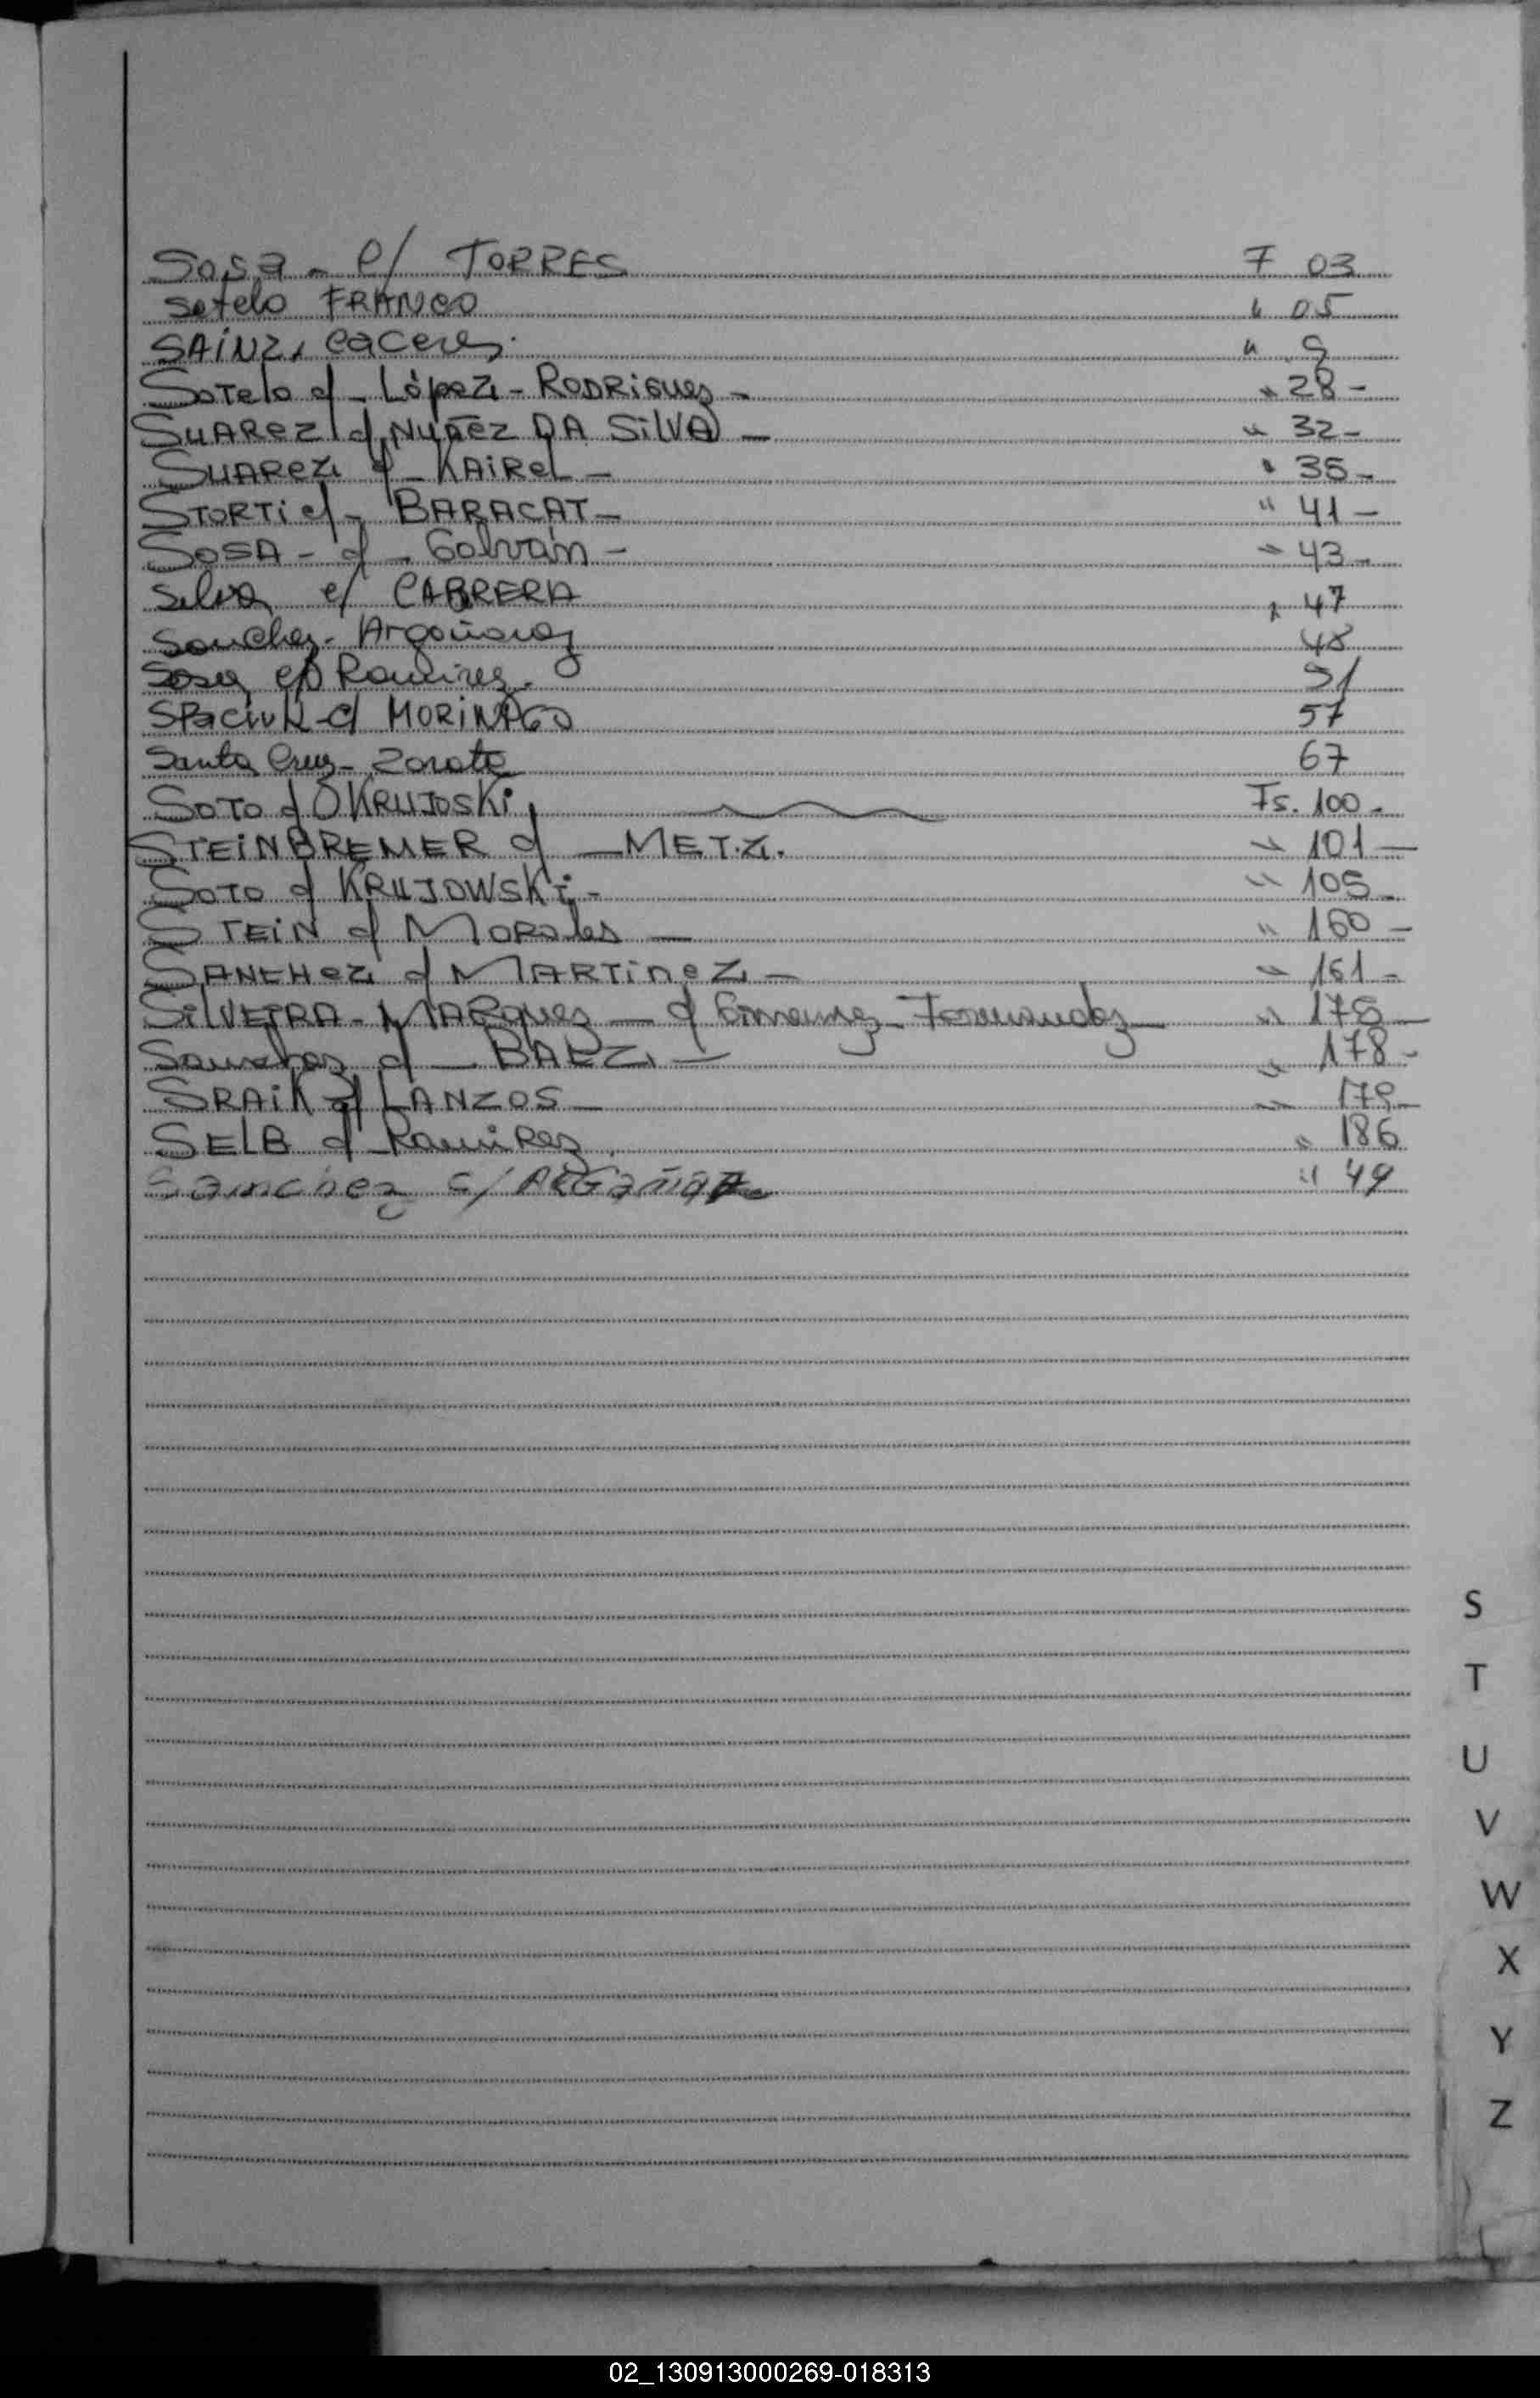 Sosa - c/ TORRES F 03
Sotelo FRANCO " 05
SAINZ, Caceres. " 9
Sotelo c/ - López - RODRIGUEZ - " 28 -
SUAREZ c/ NUÑEZ DA SILVA - " 32 -
SUAREZ c/ - KAIREL - " 35 -
STORTI c/ - BARACAT - " 41 -
SOSA - c/ - Galván - " 43 -
Silva c/ CABRERA " 47
Sanchez - Argañaraz 48
Sosa c/ Ramirez. 51
SPACIUK - c/ MORINAGO 57
Santa Cruz - Zarate 67
SOTO c/ OKRUJOSKI Fs. 100 -
STEINBREMER c/ - METZ. " 101 -
SOTO c/ KRUJOWSKI - " 105 -
STEIN c/ MORALES - " 160 -
SANCHEZ c/ MARTINEZ - " 161 -
SILVEIRA - MARQUEZ - c/ Fernandez - " 175 -
Sanchez c/ - BAEZ - " 178 -
SRAIK c/ LANZOS - " 179 -
SELB c/ Ramirez " 186
Sanchez c/ " 49
S
T
U
V
W
X
Y
Z
02_130913000269-018313